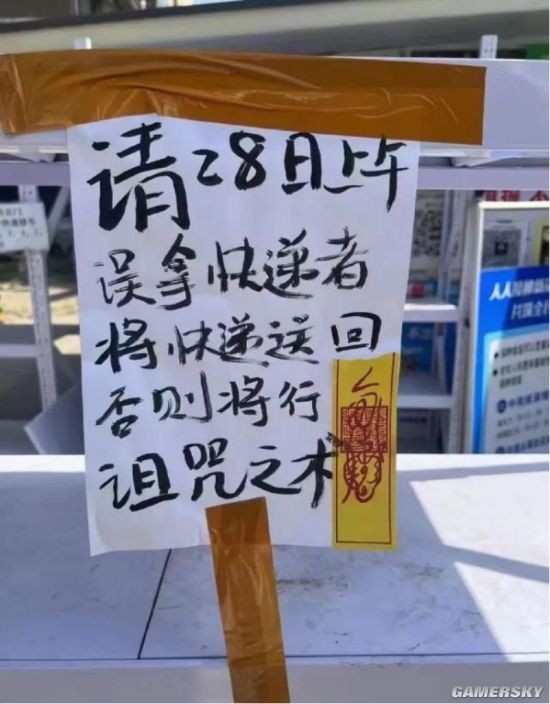 请28日上午
误拿快递者
将快递送回
否则将行
诅咒之术
GAMERSKY